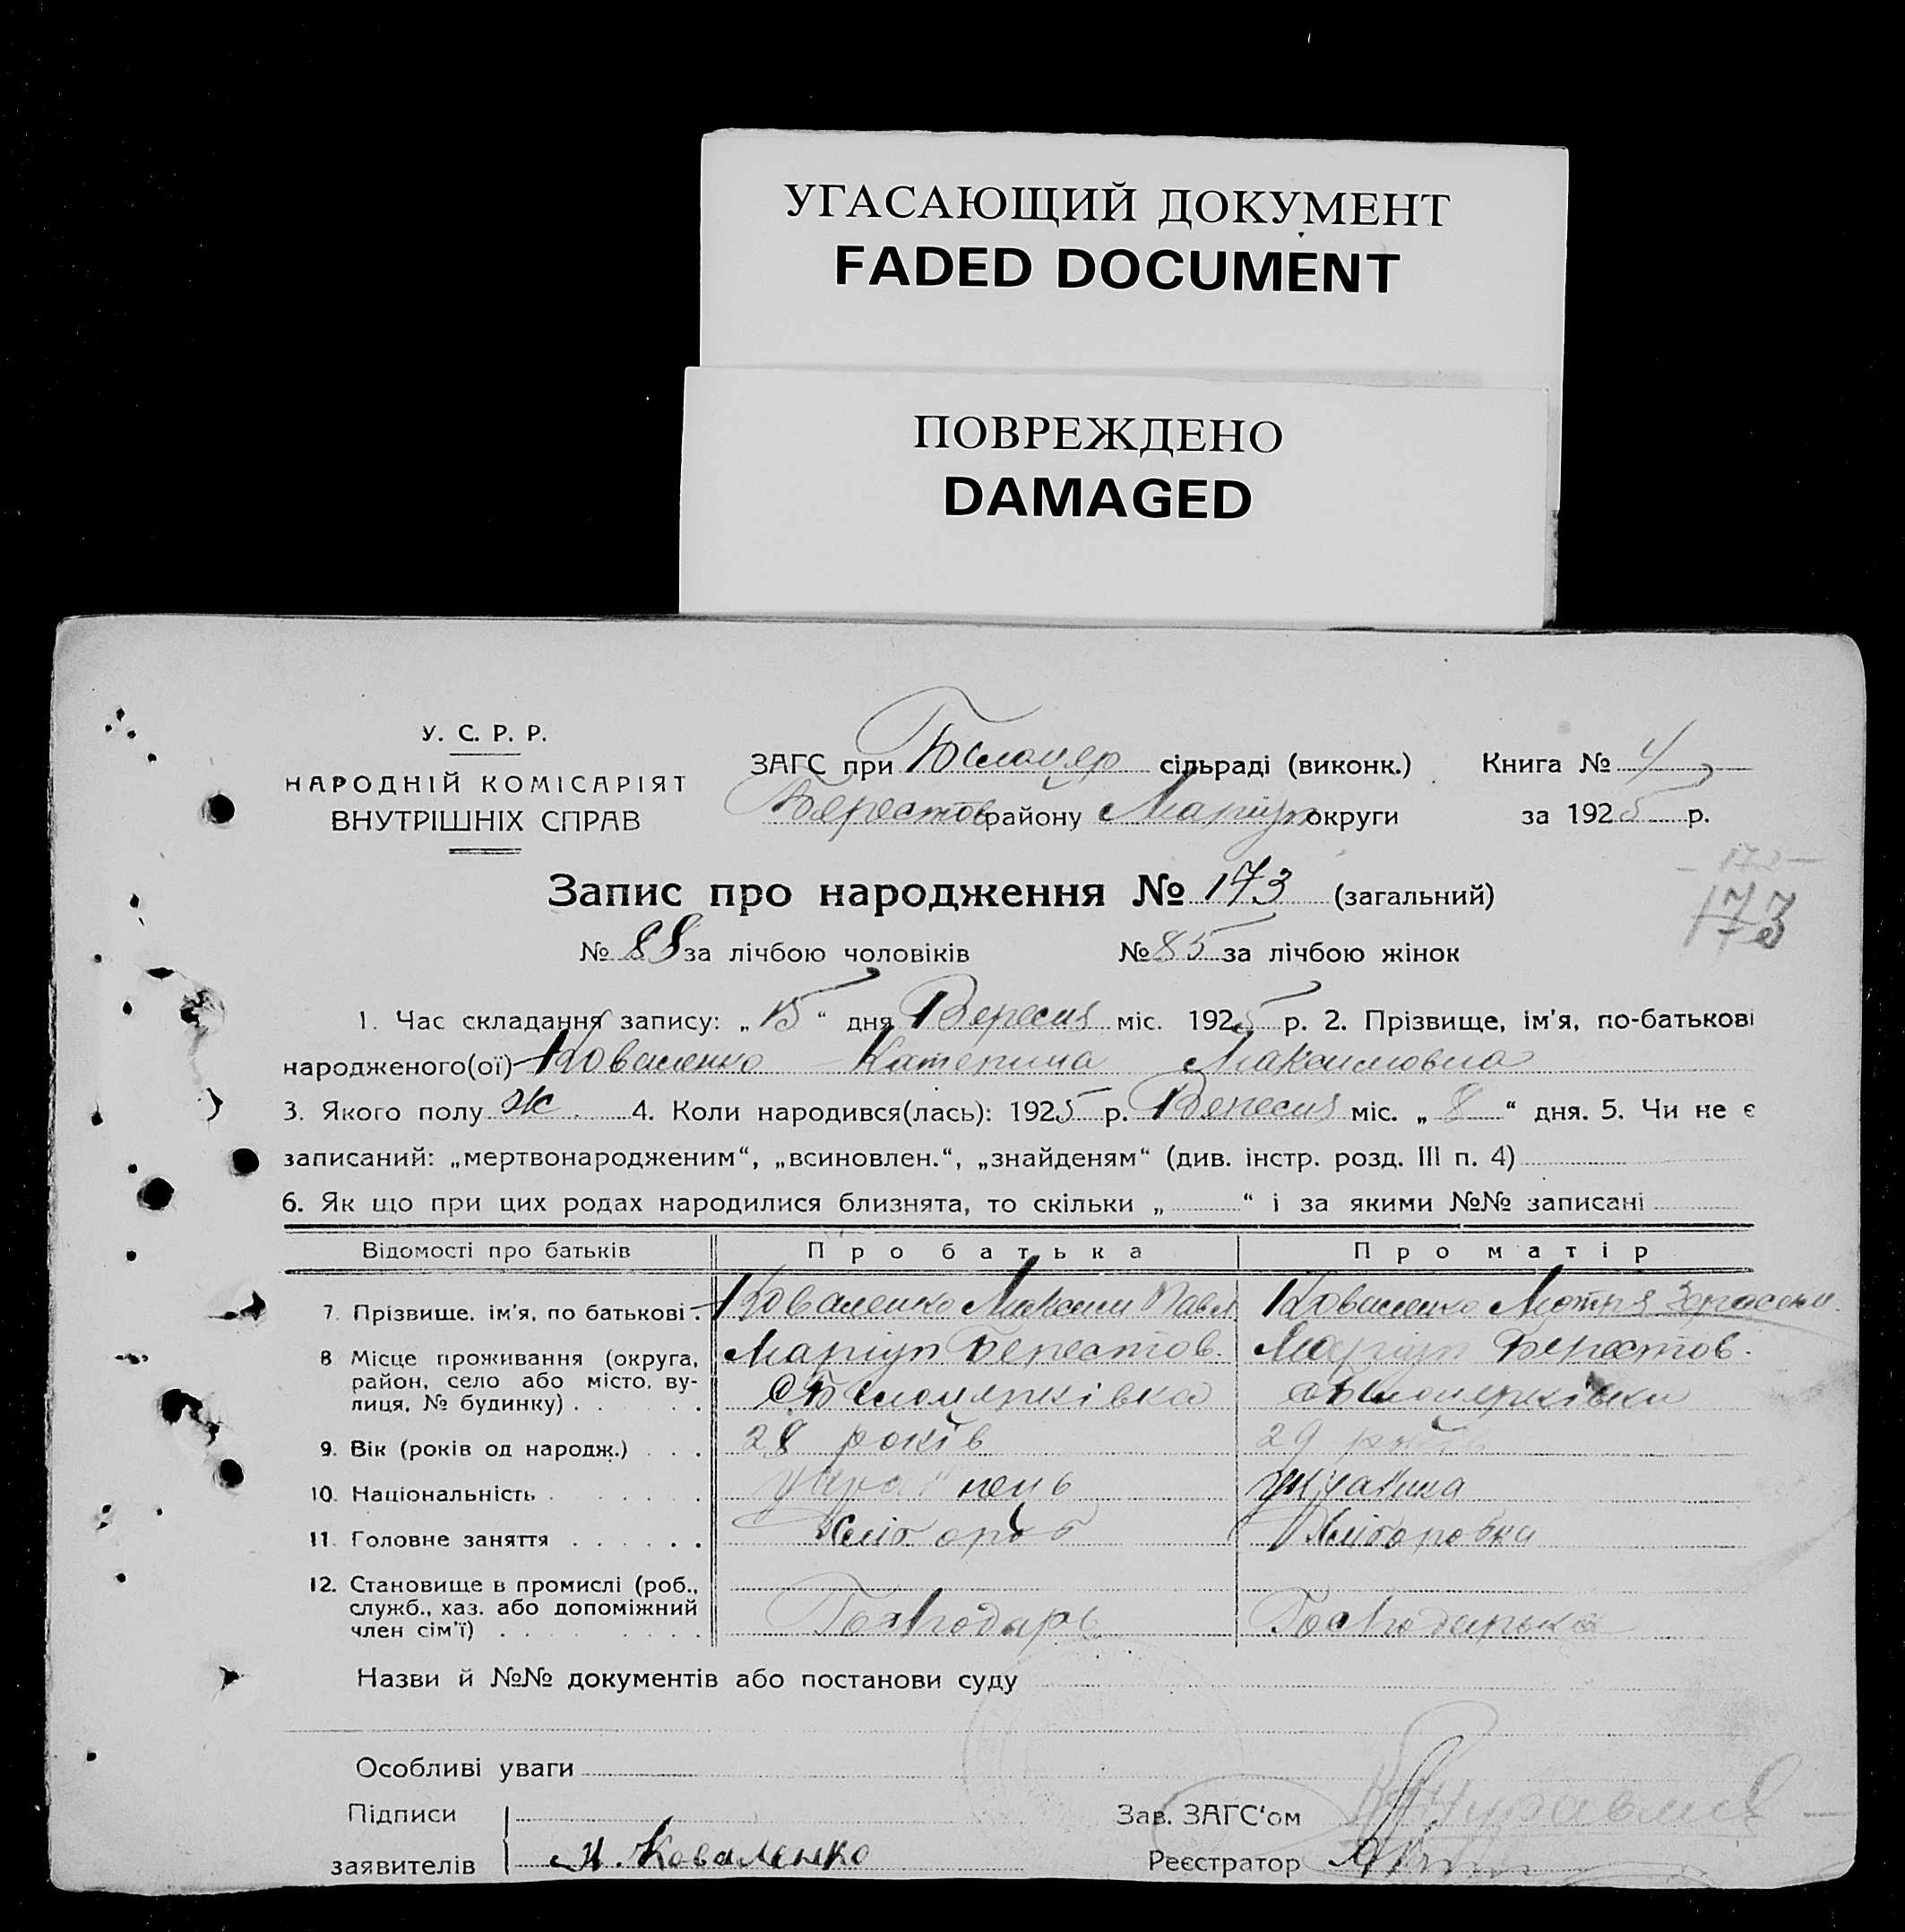 УГАСАЮЩИЙ ДОКУМЕНТ
FADED DOCUMENT
ПОВРЕЖДЕНО
DAMAGED
У. С. Р. Р.
НАРОДНІЙ КОМІСАРІЯТ
ВНУТРІШНІХ СПРАВ
ЗАГС при Білоцер сільраді (виконк.) Книга № 4
Берестов району Маріуп округи за 1925 р.
Запис про народження № 173 (загальний)
173
173
№ 88 за лічбою чоловіків № 85 за лічбою жінок
1. Час складання запису: „15“ дня Вересня міс. 1925 р. 2. Прізвище, ім'я, по-батькові
народженого(ої) Коваленко Катерина Максимовна
3. Якого полу ж. 4. Коли народився(лась): 1925 р. Вересня міс. „8“ дня. 5. Чи не є
записаний: „мертвонародженим“, „всиновлен.“, „знайденям“ (див. інстр. розд. III п. 4)
6. Як що при цих родах народилися близнята, то скільки „ “ і за якими №№ записані
Відомості про батьків Про батька Про матір
7. Прізвище, ім'я, по батькові . Коваленко Максим Павл Коваленко Мотря
8 Місце проживання (округа, район, село або місто, вулиця, № будинку) . Маріуп Берестов. Маріуп Берестов.
с Білоцерківка с Білоцерківка
9. Вік (років од народж.) . . . 28 років 29 років
10. Національність . українець україnка
11. Головне заняття . . . . . . Хлібороб Хліборобка
12. Становище в промислі (роб., служб., хаз. або допоміжний член сім'ї) . Господарь Господарька
Назви й №№ документів або постанови суду
Особливі уваги
Підписи Зав. ЗАГС'ом
заявителів М. Коваленко Реєстратор